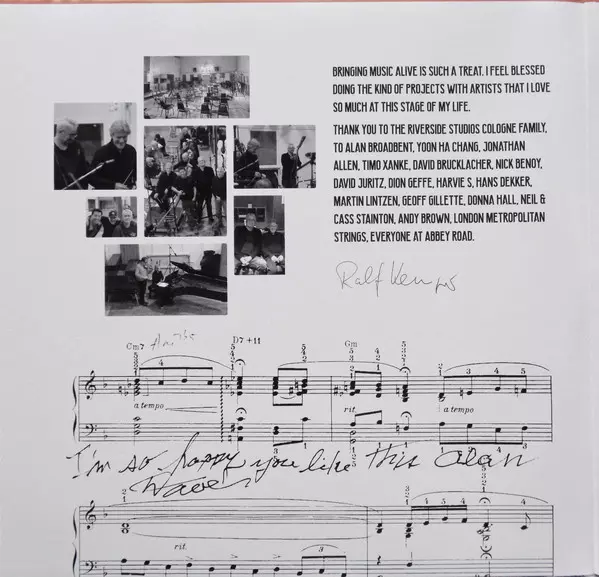 BRINGING MUSIC ALIVE IS SUCH A TREAT. I FEEL BLESSED
DOING THE KIND OF PROJECTS WITH ARTISTS THAT I LOVE
SO MUCH AT THIS STAGE OF MY LIFE.
THANK YOU TO THE RIVERSIDE STUDIOS COLOGNE FAMILY,
TO ALAN BROADBENT, YOON HA CHANG, JONATHAN
ALLEN, TIMO XANKE, DAVID BRUCKLACHER, NICK BENOY,
DAVID JURITZ, DION GEFFE, HARVIE S, HANS DEKKER,
MARTIN LINTZEN, GEOFF GILLETTE, DONNA HALL, NEIL &
CASS STAINTON, ANDY BROWN, LONDON METROPOLITAN
STRINGS, EVERYONE AT ABBEY ROAD.
Ralf
Cm7 D7+11 Gm
a tempo rit. a tempo
I'm so happy you like this Alan
rit.